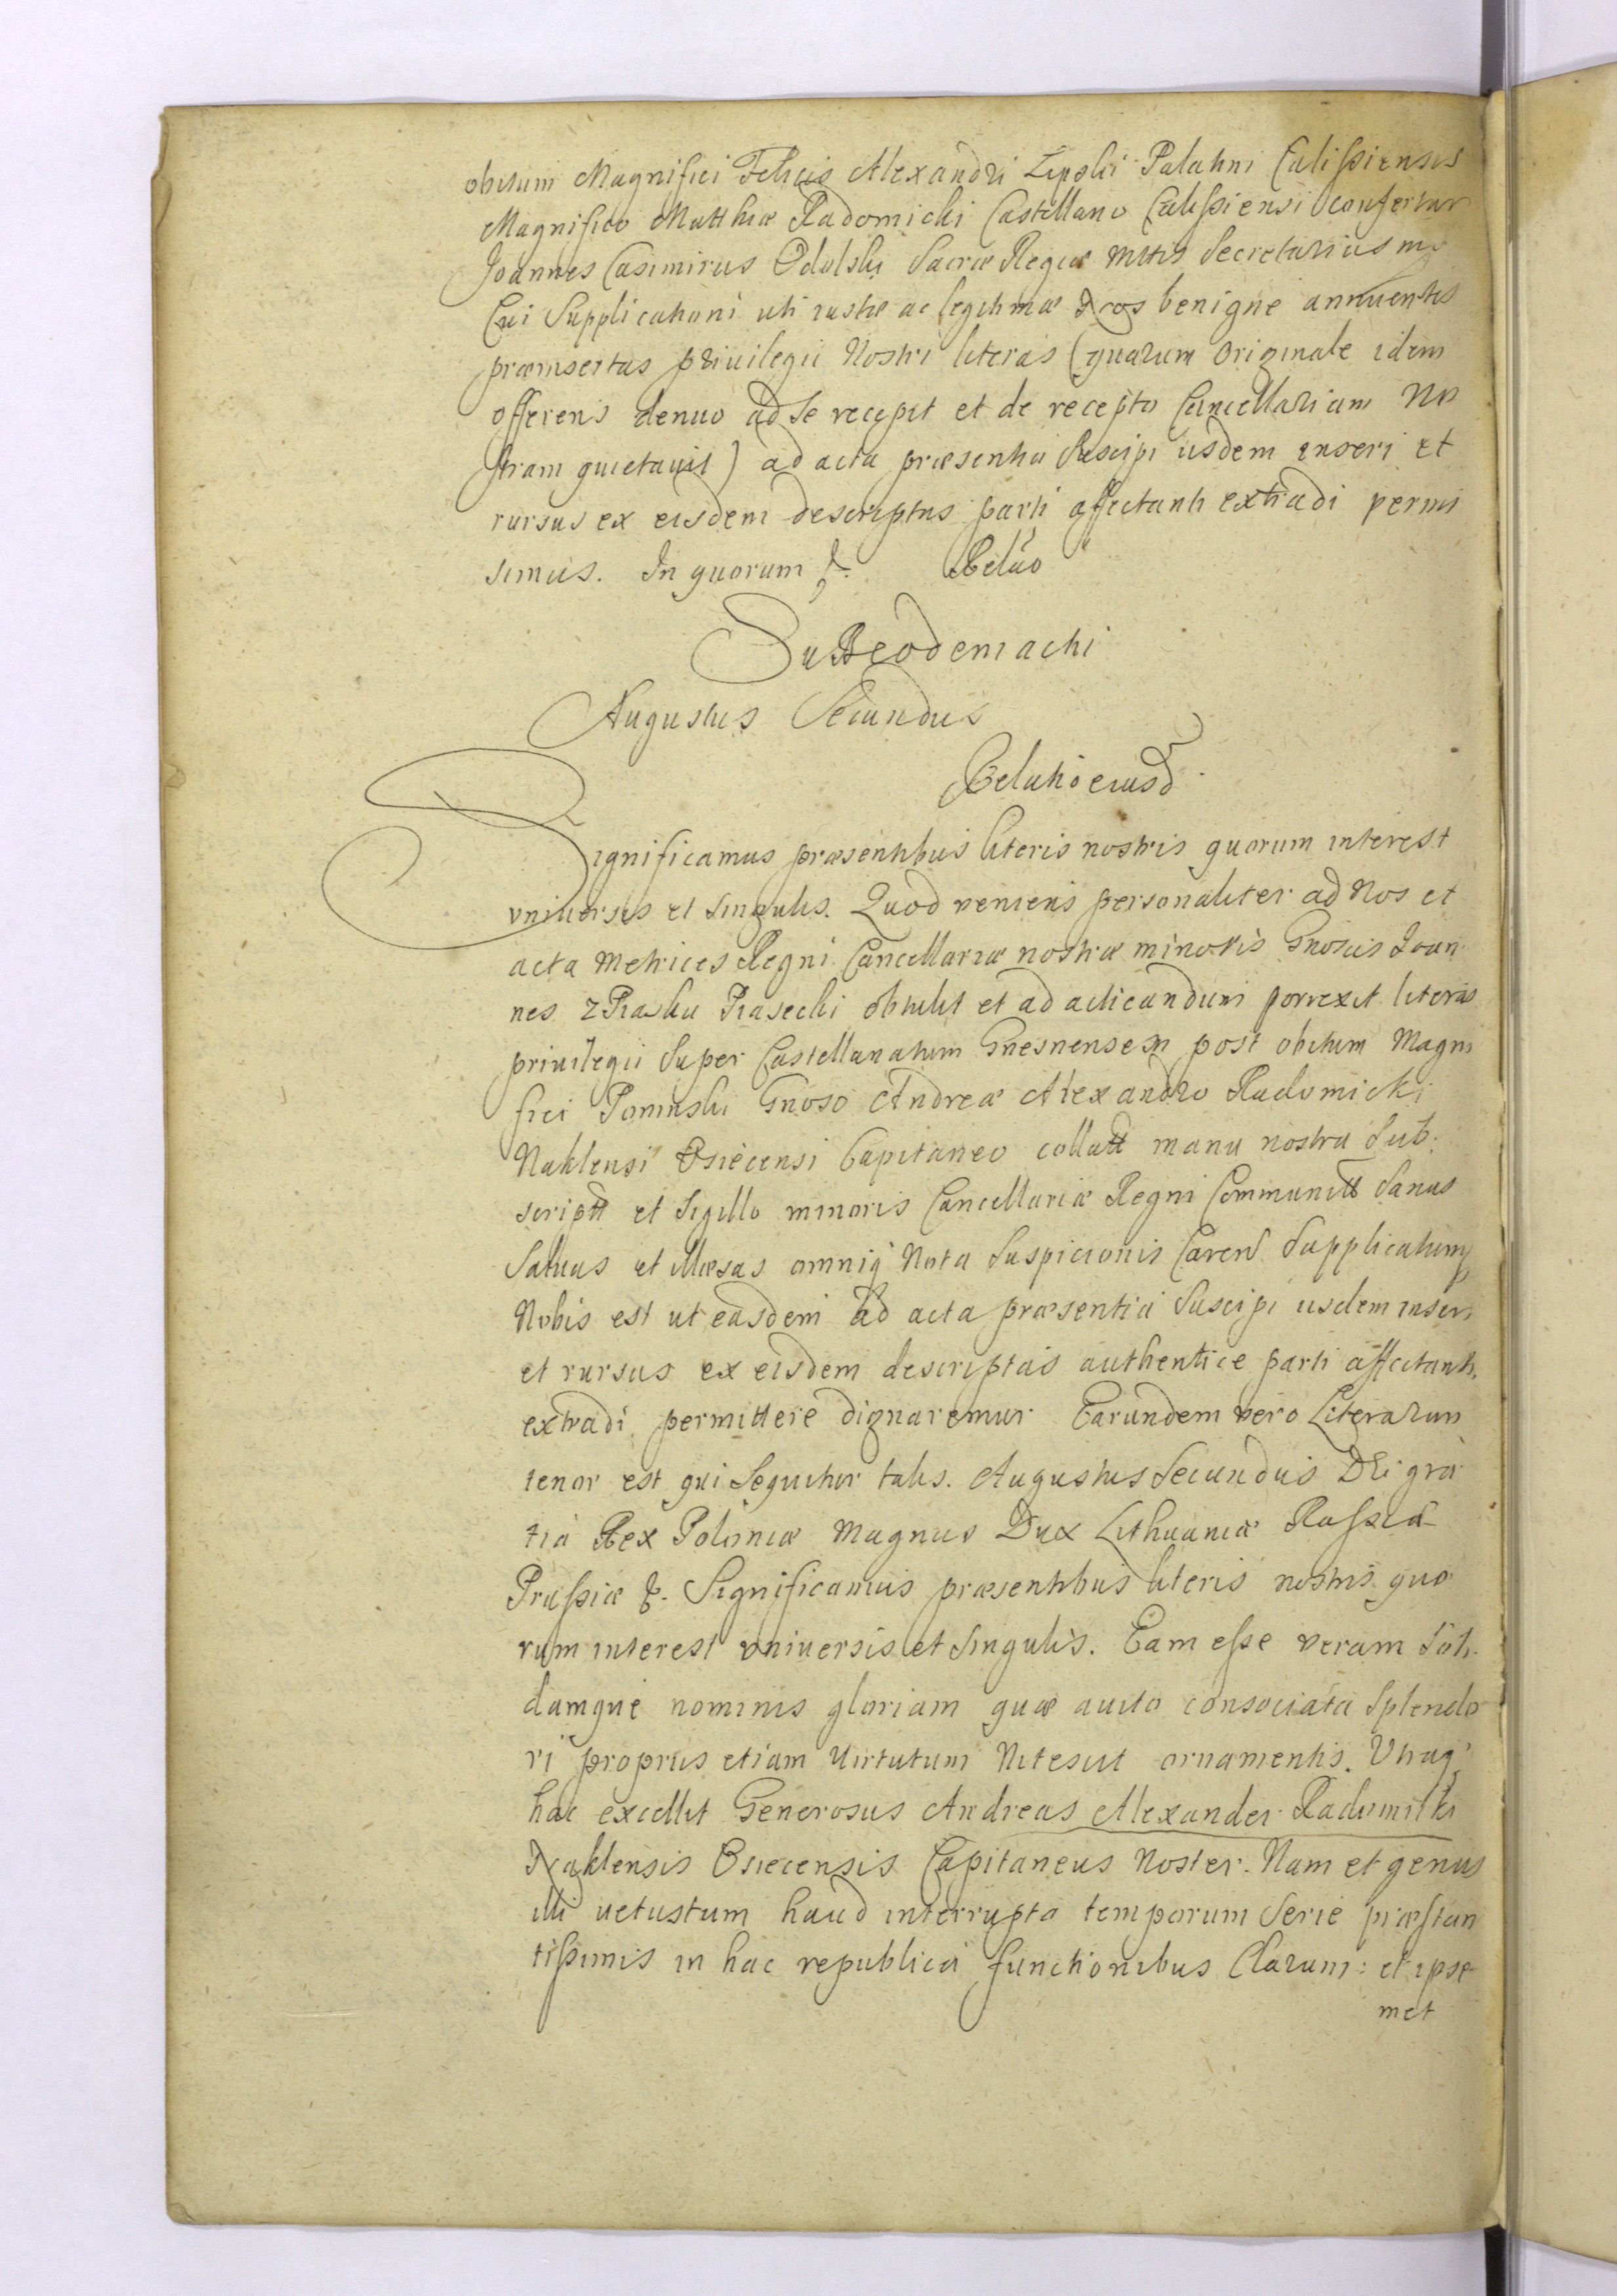 obitum Magnifici Felicis Alexandri Lipski Palatini Calissiensis
Magnifico Matthiæ Radomicki Castellano Calissiensi confertur
Joannes Casimirus Odolski Sacræ Regiæ Mttis Secretarius mp
Cui Supplicationi uti iustæ ac legitimæ Nos benigne annuentes
præinsertas privilegii Nostri literas (quarum Originale idem
offerens denuo ad Se recepit et de recepto Cancellariam No
stram quietauit) ad acta præsentia Suscipi iisdem inseri et
rursus ex eisdem descriptas parti affectanti extradi permi
simus. In quorum &. Relão
Augustus Secundus
Relatio eiusd
Significamus præsentibus literis nostris quorum interest
vniuersis et Singulis. Quod veniens personaliter ad Nos et
acta Metrices Regni Cancellariæ nostræ minoris Gnosus Joan
nes z Piasku Piasecki obtulit et ad acticandum porrexit literas
priuilegii Super Castellanatum Gnesnensem post obitum Magni
fici Poninski Gnoso Andreæ Alexandro Radomicki
Naklensi Osiecensi Capitaneo collatt manu nostra Sub.
scriptt et Sigillo minoris Cancellariæ Regni Communitt Sanas
Saluas et illæsas omniq Nota Suspicionis Caren Supplicatumq
Nobis est ut easdem ad acta præsentia Suscipi iisdem inseri
et rursus ex eisdem descriptas authentice parti affectanti
extradi permittere dignaremur Earundem vero Literarum
tenor est qui Sequitur talis. Augustus Secundus DEi gra
tia Rex Poloniæ Magnus Dux Lithuaniæ Russiæ
Prussiæ &. Significamus præsentibus literis nostris quo
rum interest vniuersis et Singulis. Eam esse veram Soli
damque nominis gloriam quæ auito consociata Splendo
ri propriis etiam Uirtutum Nitescit ornamentis. Vtraq
hac excellit Generosus Andreas Alexander Radomicki
Naklensis Osiecensis Capitaneus Noster. Nam et genus
illi uetustum haud interrupta temporum Serie præstan
tissimis in hac republica functionibus Clarum: et ipse
met